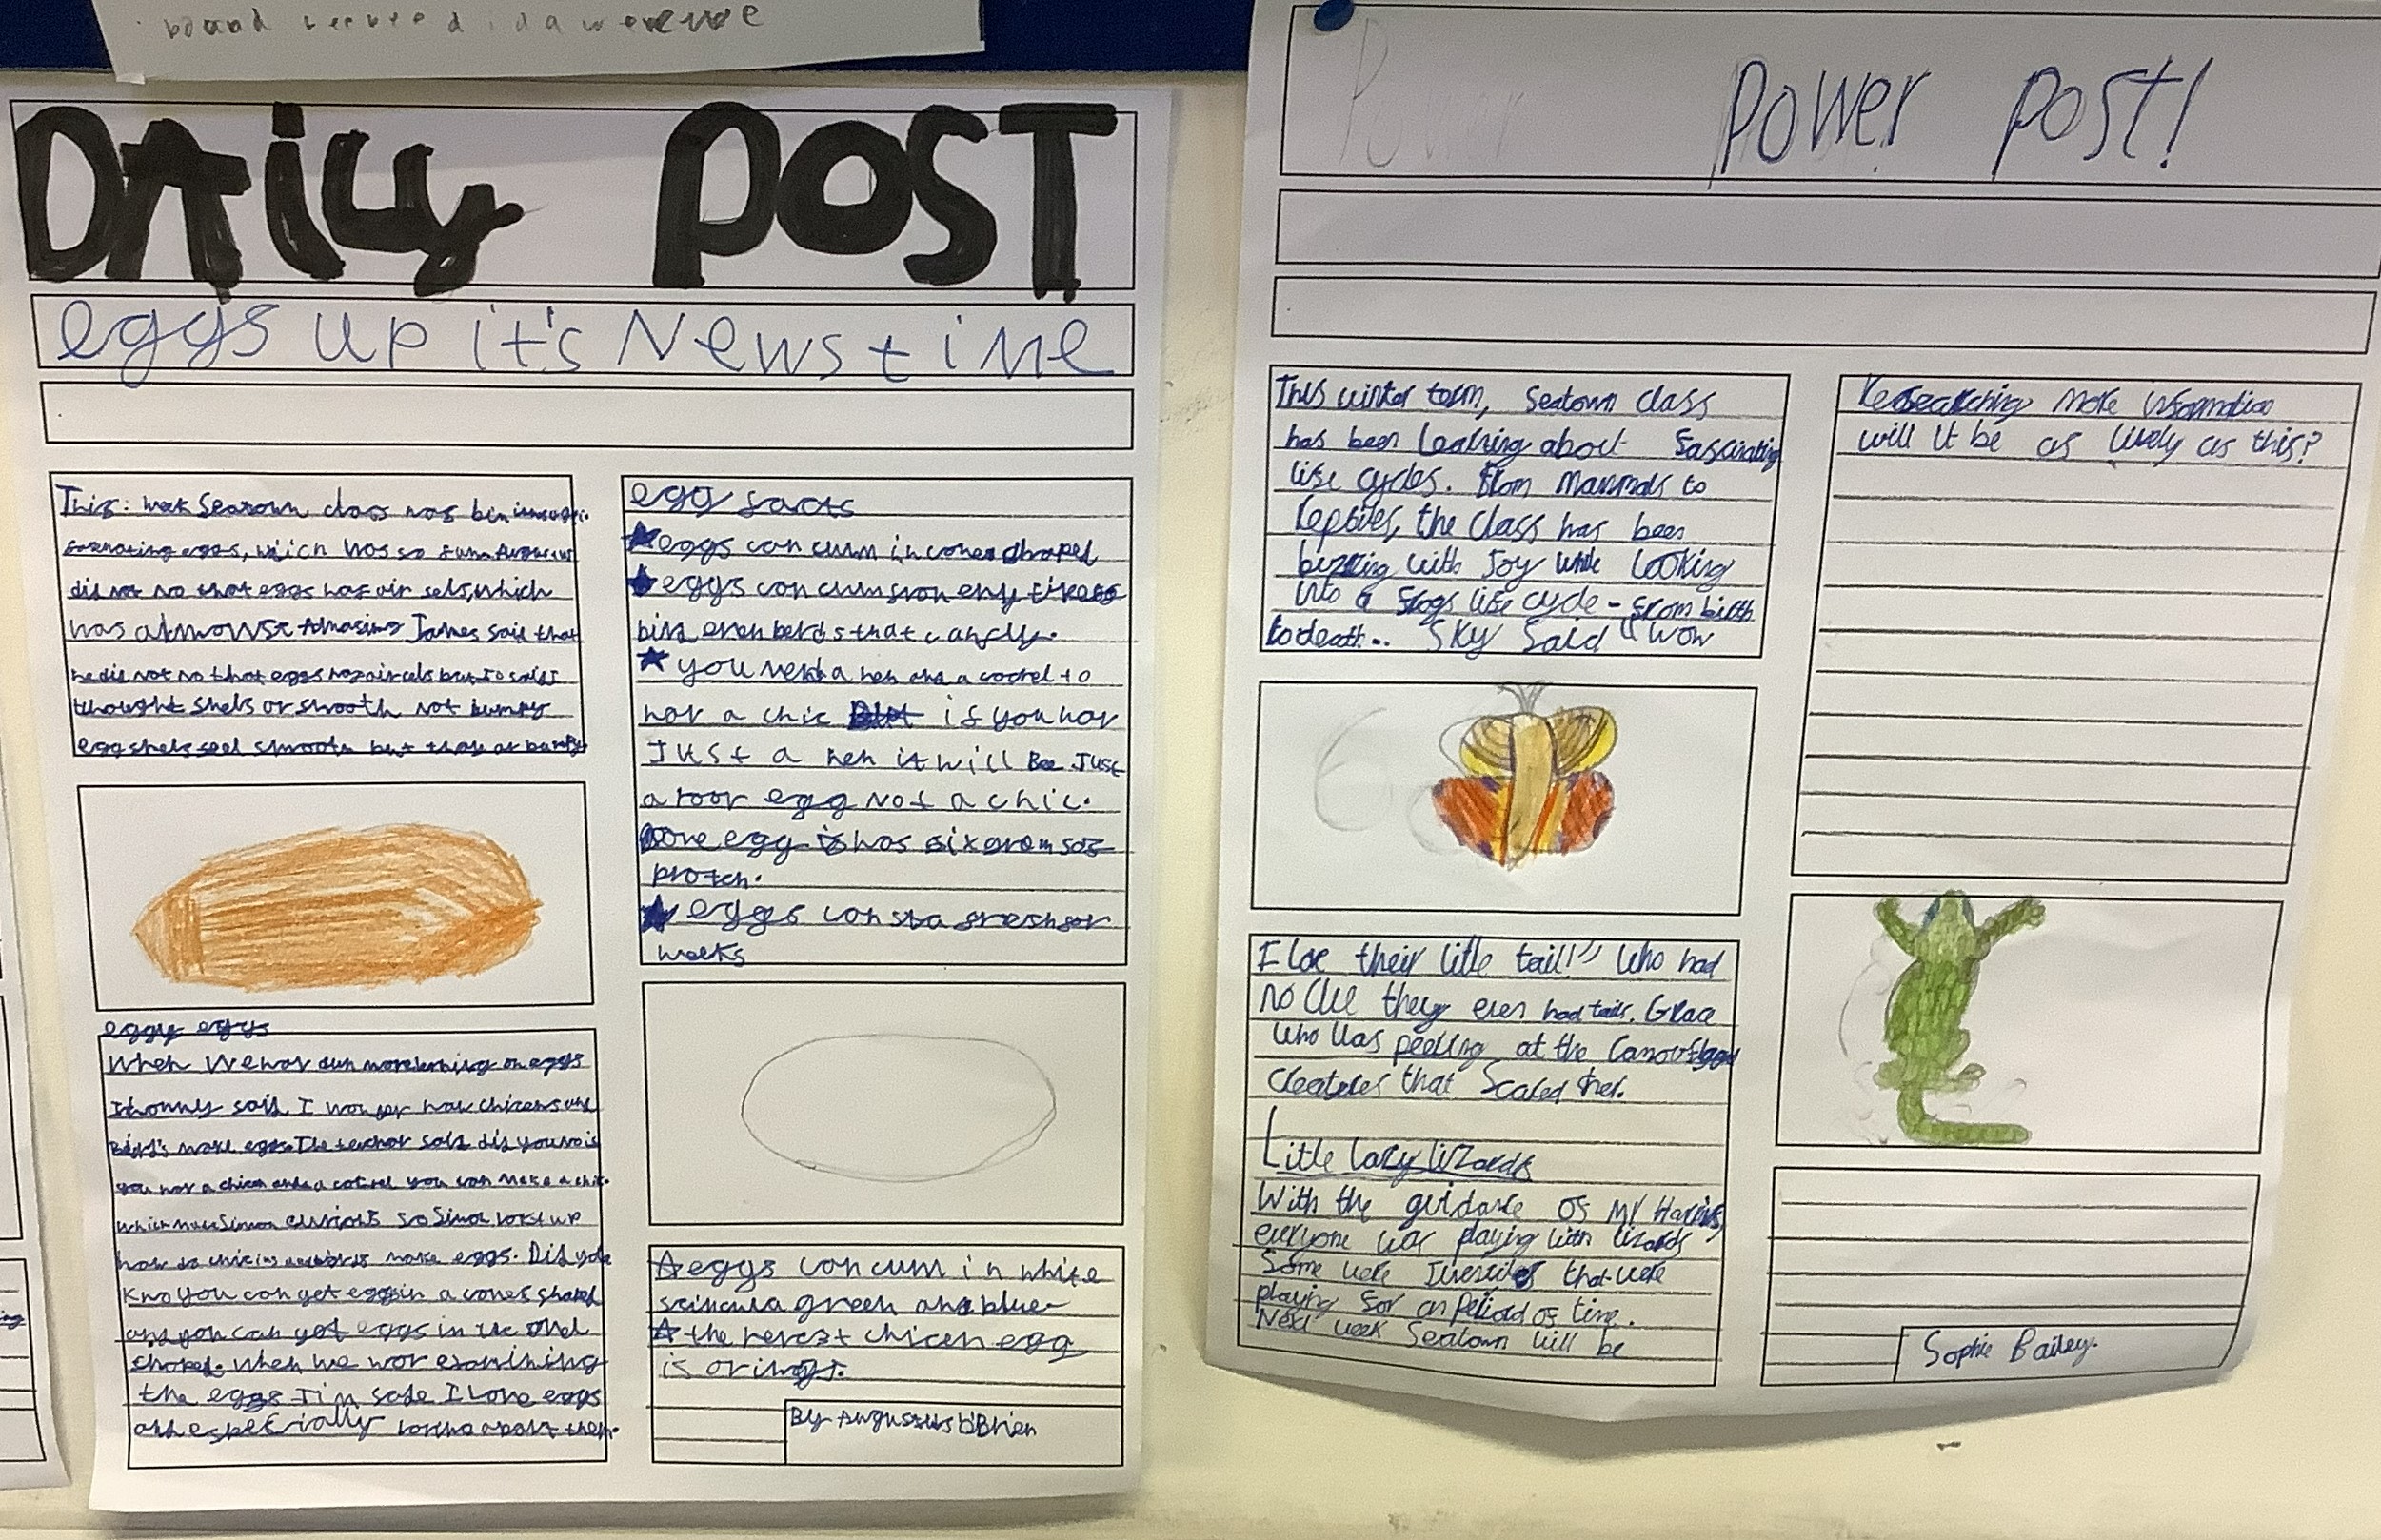 DAily POST
eggs up it's News time
This: week Seatown class has bin
eggs, which was so fun Augustus
did not no that eggs has air sels, which
was almowst Amasing James said that
he did not no that eggs has air cels but Jo said I
thought shels or smooth not bumpy
egg shels feel smooth but thay ar bumpy
eggy eggs
When We hav dun more lerning on eggs
Jhonny said I wonder how chicens and
Bird's make eggs. The teacher said did you no if
you hav a chicen and a you can make a chic.
which made Simon so Simon looked up
how do chicins make eggs. Did you
kno you can get eggs in a cones shaped
and you can get eggs in the oval
shaped. when we wor examining
the eggs Tim sade I Love eggs
an especially them.
egg facts
eggs can cum in cones shaped
eggs can cum from eny
bird even berds that canfly.
you need a hen and a cocrel to
hav a chic if you hav
Just a hen it will Bee Just
a roor egg Not a chic.
one egg has six grams of
proten.
eggs can sta fresh for
weeks
eggs can cum in white
green and blue
the rerest chicen egg
is oringe.
By Augustus O'Brien
Power Power Post!
This winter term, Seatown class
has been Learning about fascinating
life cycles. From Mammals to
reptiles, the class has been
buzzing with Joy while Looking
into a frogs life cycle - from birth
to death.. Sky Said "wow
I love their little tail!" Who had
no clue they even had tails. Grace
who was peering at the Camouflaged
creatures that Scared her.
Little lazy lizards
With the guidance of Mr Harris,
everyone was playing with lizards
Some were that were
playing for an period of time.
Next week Seatown will be
Researching more information
will it be as lively as this?
Sophie Bailey.